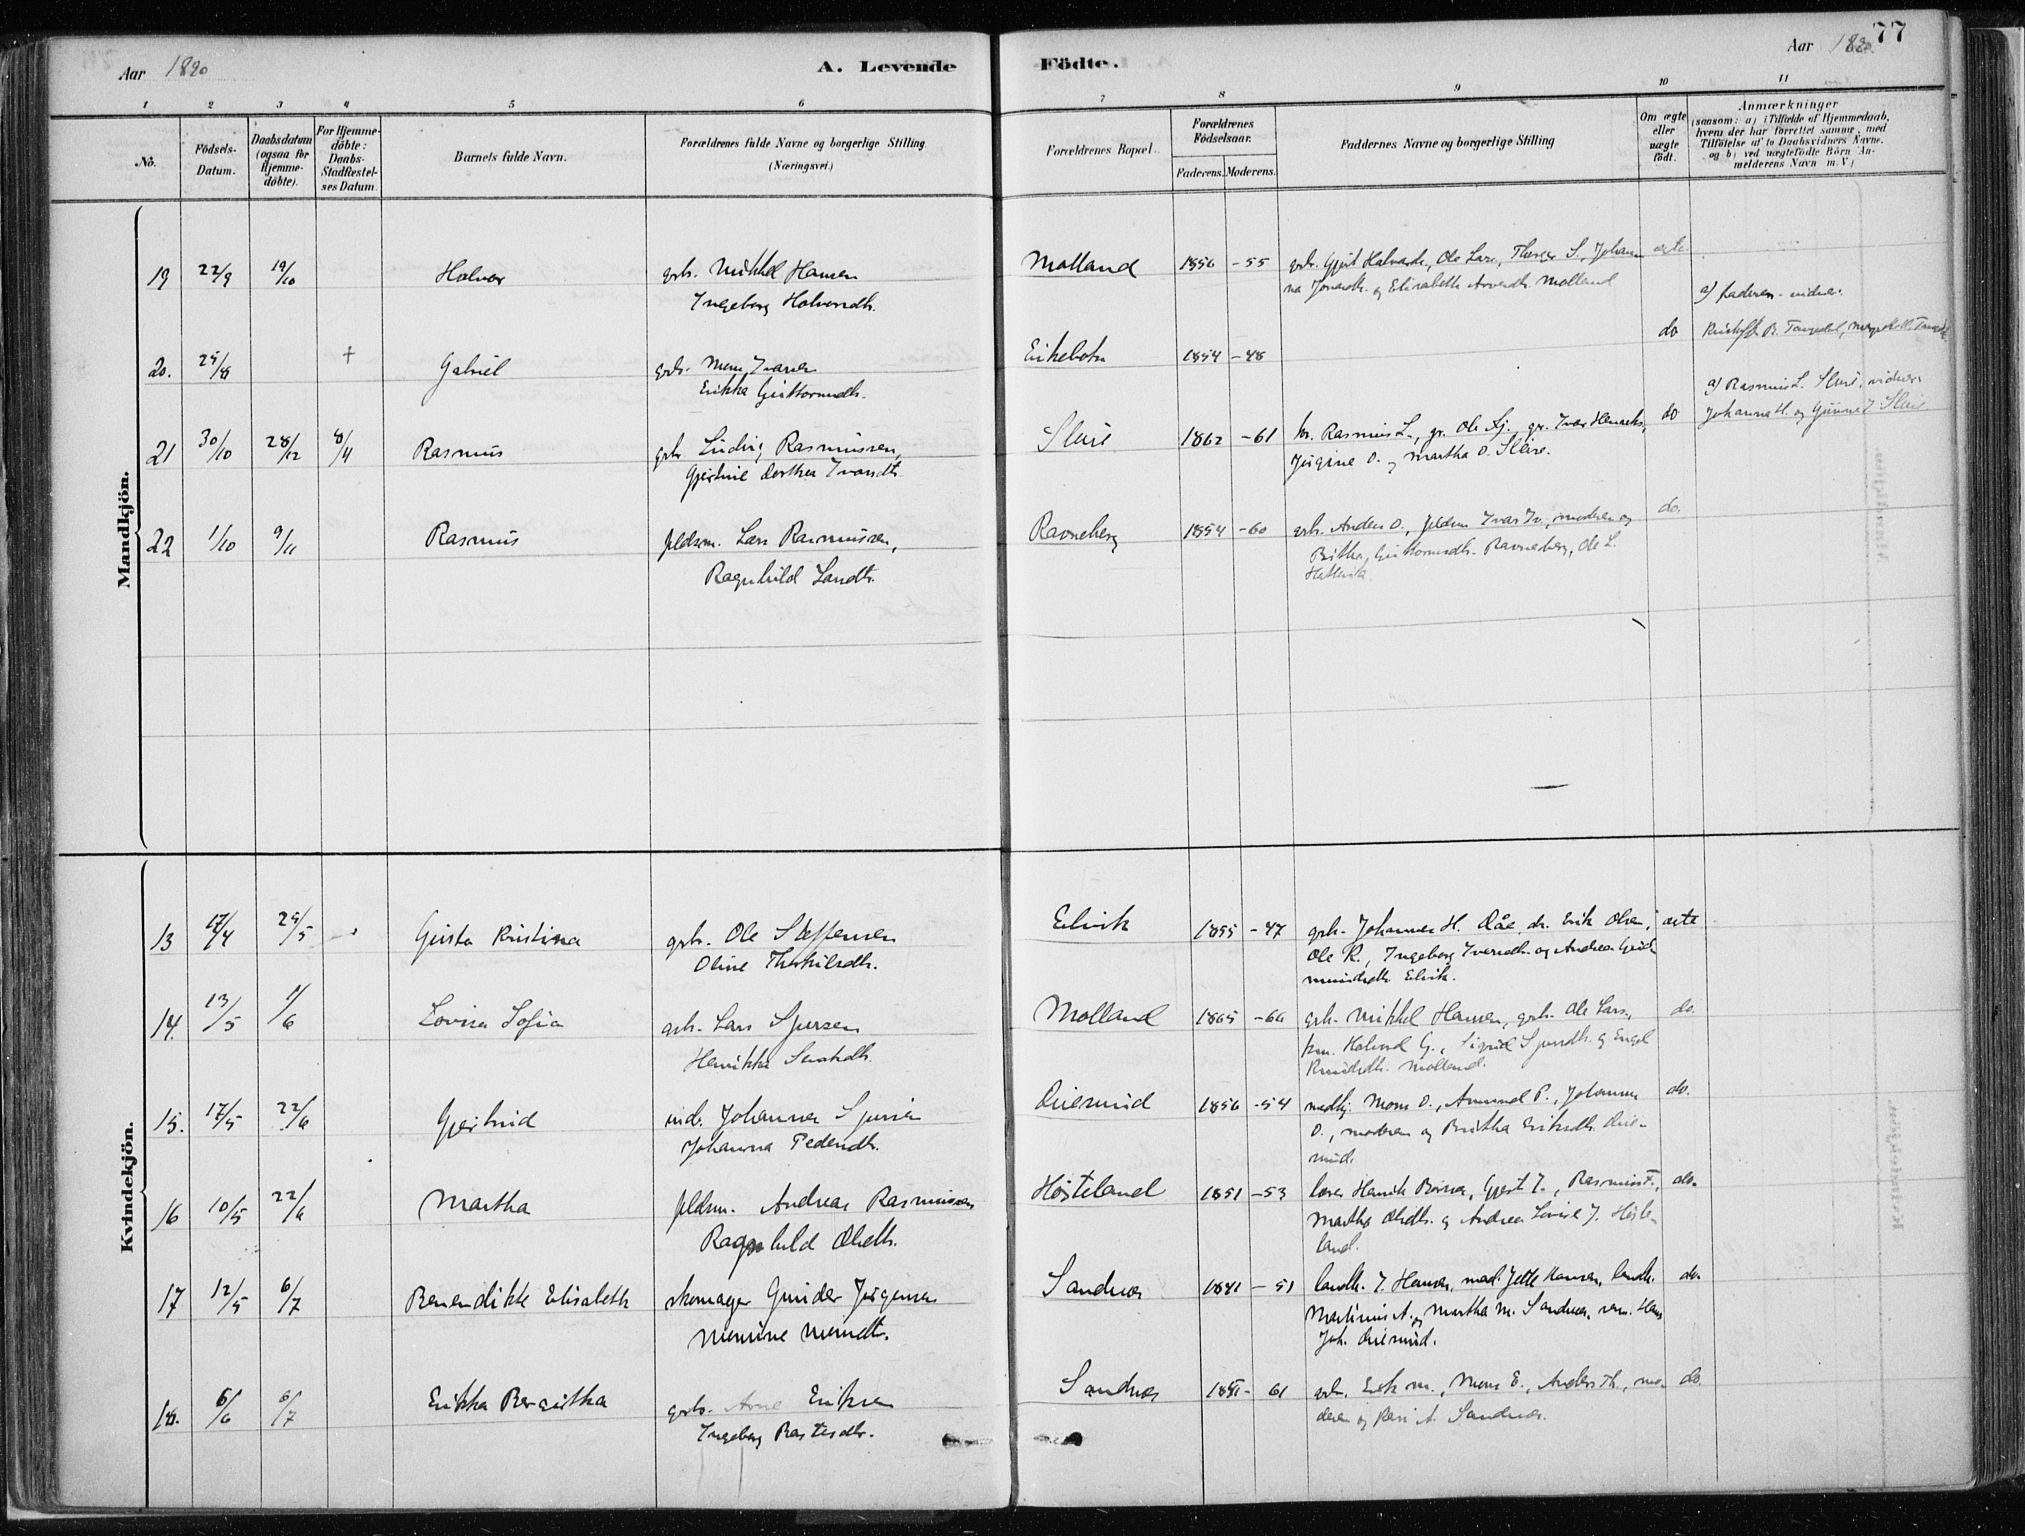 Aar 1890
A. Levende
Födte.
Aar 1890.
77
1 2 3 4 5 6 7 8 9 10 11
No.
Födsels-Datum.
Daabsdatum (ogsaa for Hjemme-döbte).
For Hjemme-döbte: Daabs-Stadfæstel-ses Datum.
Barnets fulde Navn.
Forældrenes fulde Navne og borgerlige Stilling (Næringsvei.)
Forældrenes Bopæl.
Forældrenes Födselsaar.
Faderens. Moderens.
Faddernes Navne og borgerlige Stilling
Om ægte eller uægte födt.
Anmærkninger
(saasom: a) i Tilfælde af Hjemmedaab,
hvem der har forrettet samme, med
Tilföielse af to Daabsvidners Navne.
og b) ved uægtefödte Börn An-
melderens Navn m. V.)
Mandkjön.
19 22/9 19/10 Halvor grb. Mikkel Hansen
Ingeborg Halvorsdtr.
Molland 1856 -55 grb. Gjert Halvards., Ole Lars., Therger S., Johan-
na Jonasdtr. og Elisabeth Molland
ægte
a) faderen. vidner:
20. 25/8 + Gabriel grb. Mons Ivarsen
Erikka Guttormsdtr.
Eikebotn 1854 -48
do
21 30/10 28/12 8/4 Rasmus grb. Ludvig Rasmussen,
Gjertine Dorthea Ivarsdtr.
Sleire 1862 -61 Rasmus L., gr. Ole Aj., gr. Ivar Henriks.,
Jørgine O. og Martha O. Sleire.
do
a) Rasmus L. Sleire, vidner:
Johanna H. og Gunne J. Sleire
22 1/10 9/11 Rasmus pldsm. Lars Rasmussen,
Ragnhild Larsdtr.
Ravneberg 1854 -60 grb. Anders O., pldsm Ivar Iv., moderen og
Britha Guttormsdtr. Ravneberg, Ole L.
Hatlevik.
do.
Kvindekjön.
13 17/4 25/5 Gjerta Kristina grb. Ole Steffensen
Oline Thorkilsdtr.
Eilvik 1855 -47 grb. Johannes H. Råe, dr. Erik Olsen,
Ole R., Ingeborg Iversdtr. og Andrea Gud-
mundsdtr. Eilvik.
ægte
14. 13/5 1/6 Lovisa Sofia grb. Lars Sjursen
Henrikka
Molland 1865 -66 grb. Mikkel Hansen, grb. Ole Lars.,
Halvard G., Sigrid Sjursdtr. og Engel
Knudsdtr. Molland.
do.
15. 17/5 22/6 Gjertrud ind. Johannes Sjursen
Johanna Pedersdtr.
1856 -54 Mons O., Amund P., Johannes
O., moderen og Britha Eriksdtr.
do.
16 10/5 22/6 Martha pldsm. Andreas Rasmussen
Ragnhild Olsdtr.
Høsteland 1851 -53 lærer Henrik Gjert J., Rasmus T.,
Martha Olsdtr. og Andrea Lovise J. Høste-
land.
do.
17 12/5 6/7 Benendikte Elisabeth skomager Gunder Jørgensen
Monsine Monsdtr.
Sandnes 1841 -51 landh. J. Hansen, mad. Jette Hansen, landh.
Martinus A. og Martha M. Sandnes, Hans
Joh.
do.
18. 6/6 6/7 Erikka Bergitha grb. Arne Eriksen
Ingeborg
Sandnes 1851- 61 grb. Erik M., Mons E., Anders Th., mo-
deren og Kari A. Sandnes.
do.